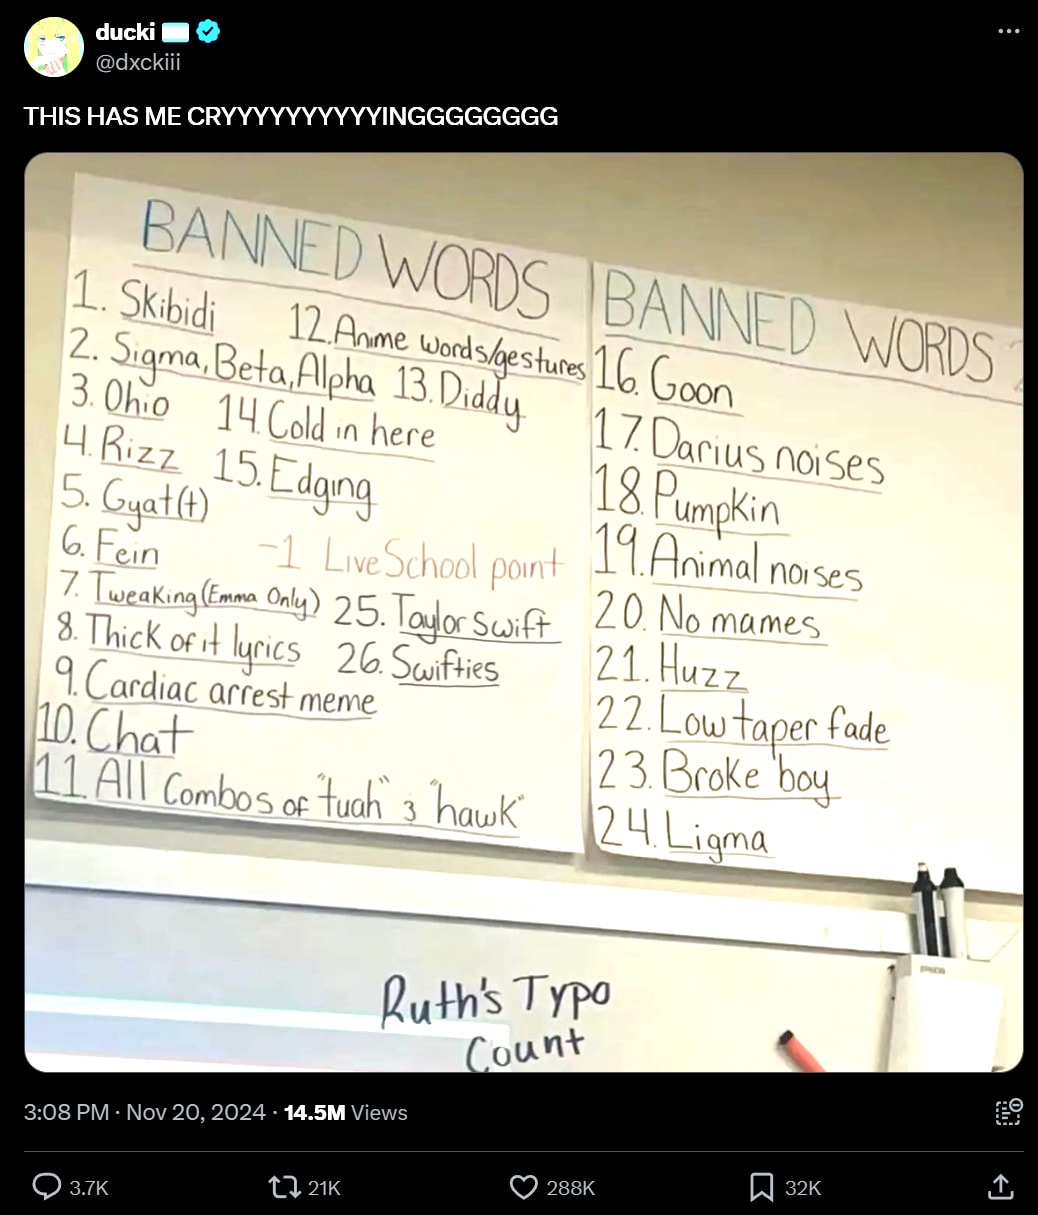 ducki
@dxckiii
THIS HAS ME CRYYYYYYYYYYINGGGGGGGG
BANNED WORDS
1. Skibidi
12. Anime words/gestures
2. Sigma, Beta, Alpha
13. Diddy
3. Ohio
14. Cold in here
4. Rizz
15. Edging
5. Gyat(t)
6. Fein
-1 LiveSchool point
7. Tweaking (Emma Only)
25. Taylor Swift
8. Thick of it lyrics
26. Swifties
9. Cardiac arrest meme
10. Chat
11. All Combos of "tuah" & "hawk"
BANNED WORDS 2
16. Goon
17. Darius noises
18. Pumpkin
19. Animal noises
20. No mames
21. Huzz
22. Low taper fade
23. Broke boy
24. Ligma
EPSON
Ruth's Typo
Count
3:08 PM · Nov 20, 2024 · 14.5M Views
3.7K 21K 288K 32K